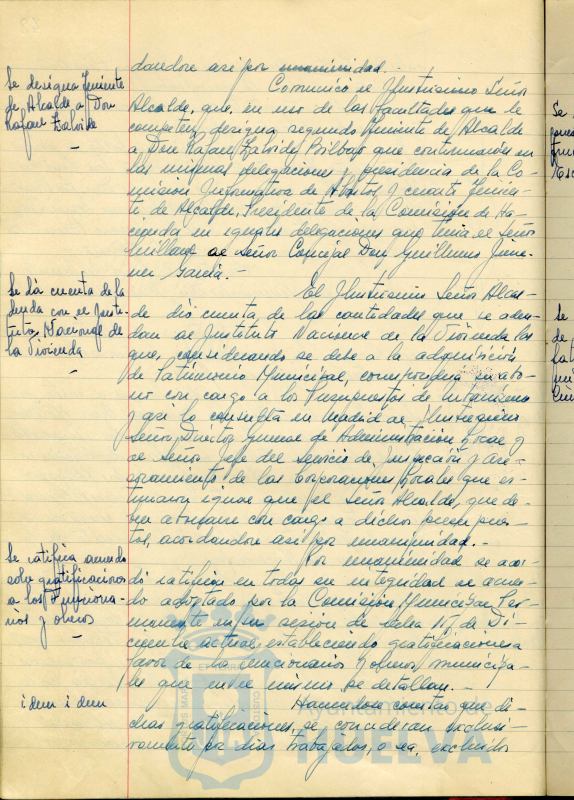 dandose asi por unanimidad.-
Se designa Teniente
de Alcalde a Don
Rafael
Comunicó el Ilustrisimo Señor
Alcalde, que, en uso de las facultades que le
competen, designa segundo Teniente de Alcalde
a Don Rafael Bilbao que continuará en
las mismas delegaciones y presidencia de la Co-
misión Informativa de Abastos y cuarto Tenien-
te de Alcalde, Presidente de la Comisión de Ha-
cienda en iguales delegaciones que tenia el Señor
al Señor Concejal Don Guillermo Jime-
nez Garcia.-
Se dá cuenta de la
deuda con el Insti-
tuto Nacional de
la Vivienda
El Ilustrisimo Señor Alcal-
de dió cuenta, de las cantidades que se adeu-
dan al Instituto Nacional de la Vivienda las
que, considerando se debe a la adquisición
de Patrimonio Municipal, su abo-
no con cargo a los Presupuestos de Urbanismo
y asi lo consulta en Madrid al Ilustrisimo
Señor Director General de Administración Local y
al Señor Jefe del Servicio de Inspección y ase-
soramiento de las Corporaciones Locales que es-
timaron igual que el Señor Alcalde, que de-
bia abonarse con cargo a dichos presupues-
tos, acordandose asi por unanimidad.-
Se ratifica acuerdo
sobre gratificaciones
a los Funciona-
rios y obreros
Por unanimidad se acor-
dó ratificar en toda su integridad el acuer-
do adoptado por la Comisión Municipal Per-
manente en su sesión de fecha 17 de Di-
ciembre actual, estableciendo gratificaciones a
favor de los funcionarios y obreros municipa-
les que en el mismo se detallan.-
idem idem
Haciendose constar que di-
chas gratificaciones, se concederan exclusi-
vamente por dias trabajados, o sea, excluidos
Se
Se
de
Ayuntamiento de
HUELVA